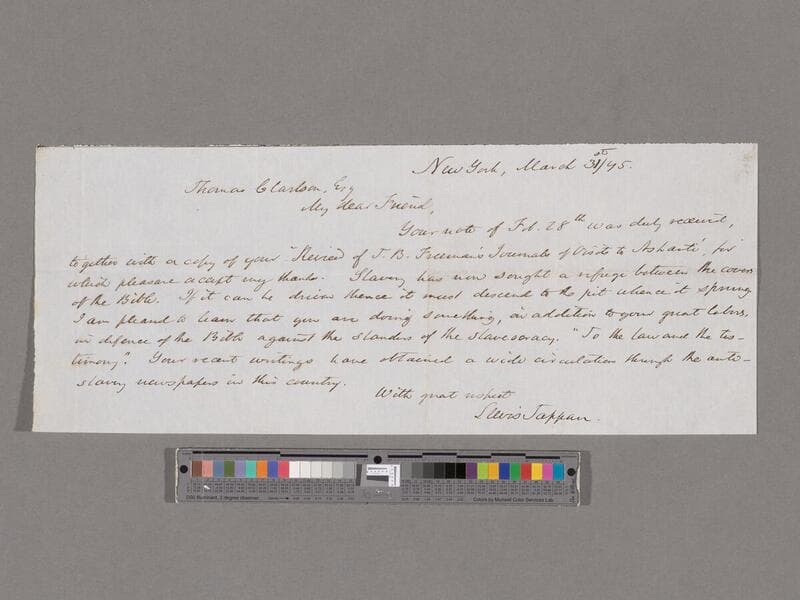 New York, March 31st/45.
Thomas Clarkson, Esq
My dear Friend,
Your note of Feb. 28th was duly received,
together with a copy of your "Review of J. B. Freeman's Journals of Visits to Ashanti", for
which please accept my thanks. Slavery has now sought a refuge between the covers
of the Bible. If it can be driven thence it must descend to the pit whence it sprung
I am pleased to learn that you are doing something, in addition to your great labors,
in defence of the Bible against the slanders of the slaveocracy. "To the law and the tes-
timony". Your recent writings have obtained a wide circulation through the anti-
slavery newspapers in this country.
With great respect
Lewis Tappan.